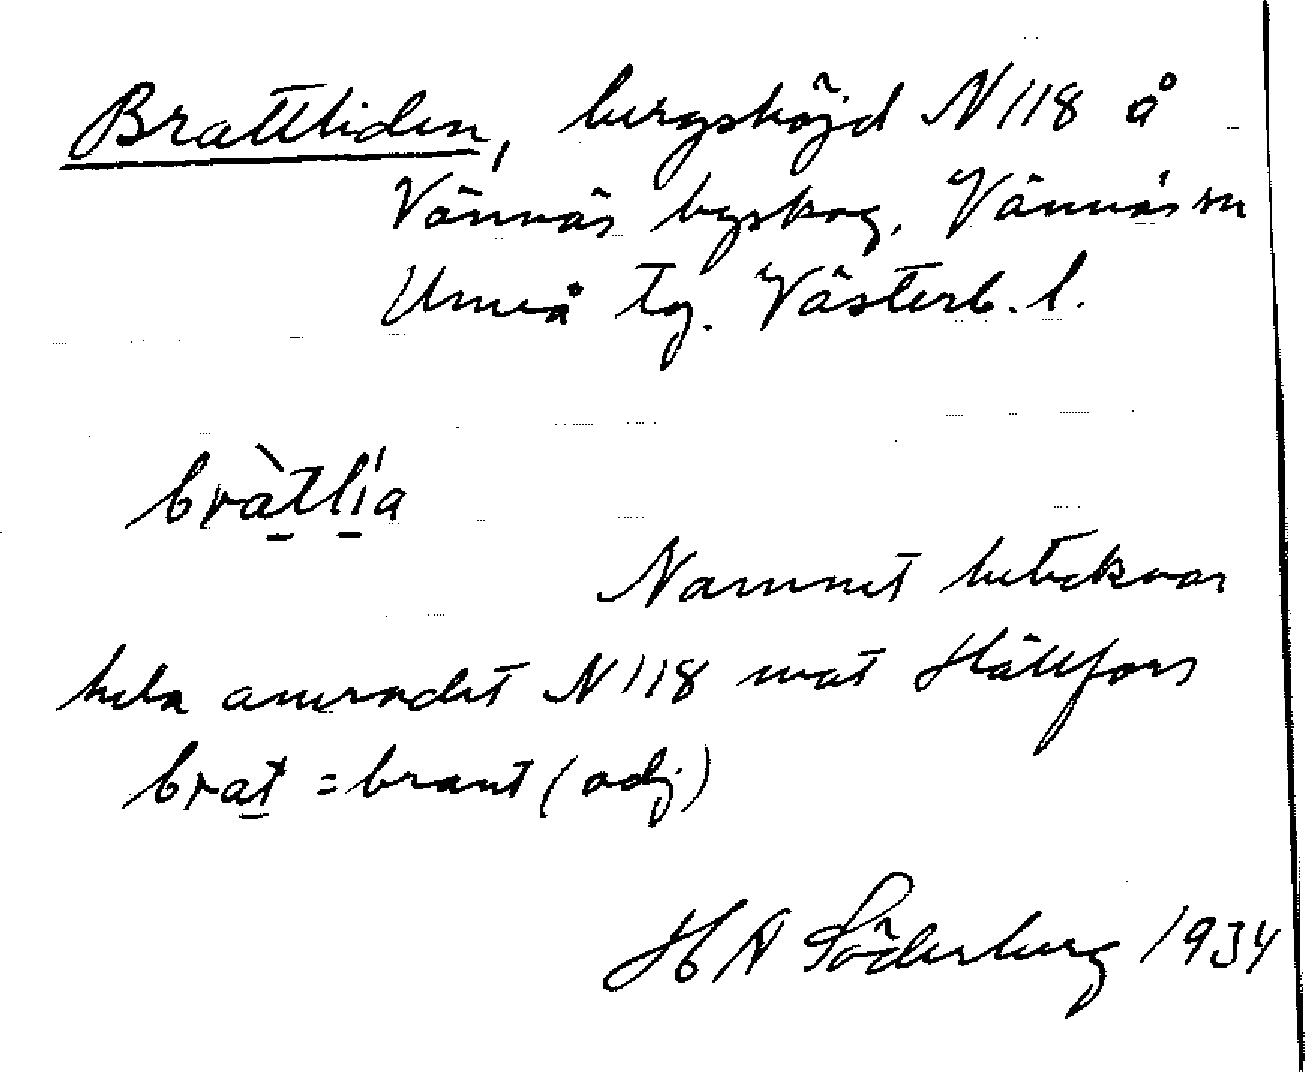 Brattliden, bergshöjd N 118 å
Vännäs byskog. Vännäs sn
Umeå tg. Västerb. l.
bràt̲lí̲a
Namnet betecknar
hela området N 118 mot Hällfors
brat̲ = brant (adj)
H A Söderberg 1934